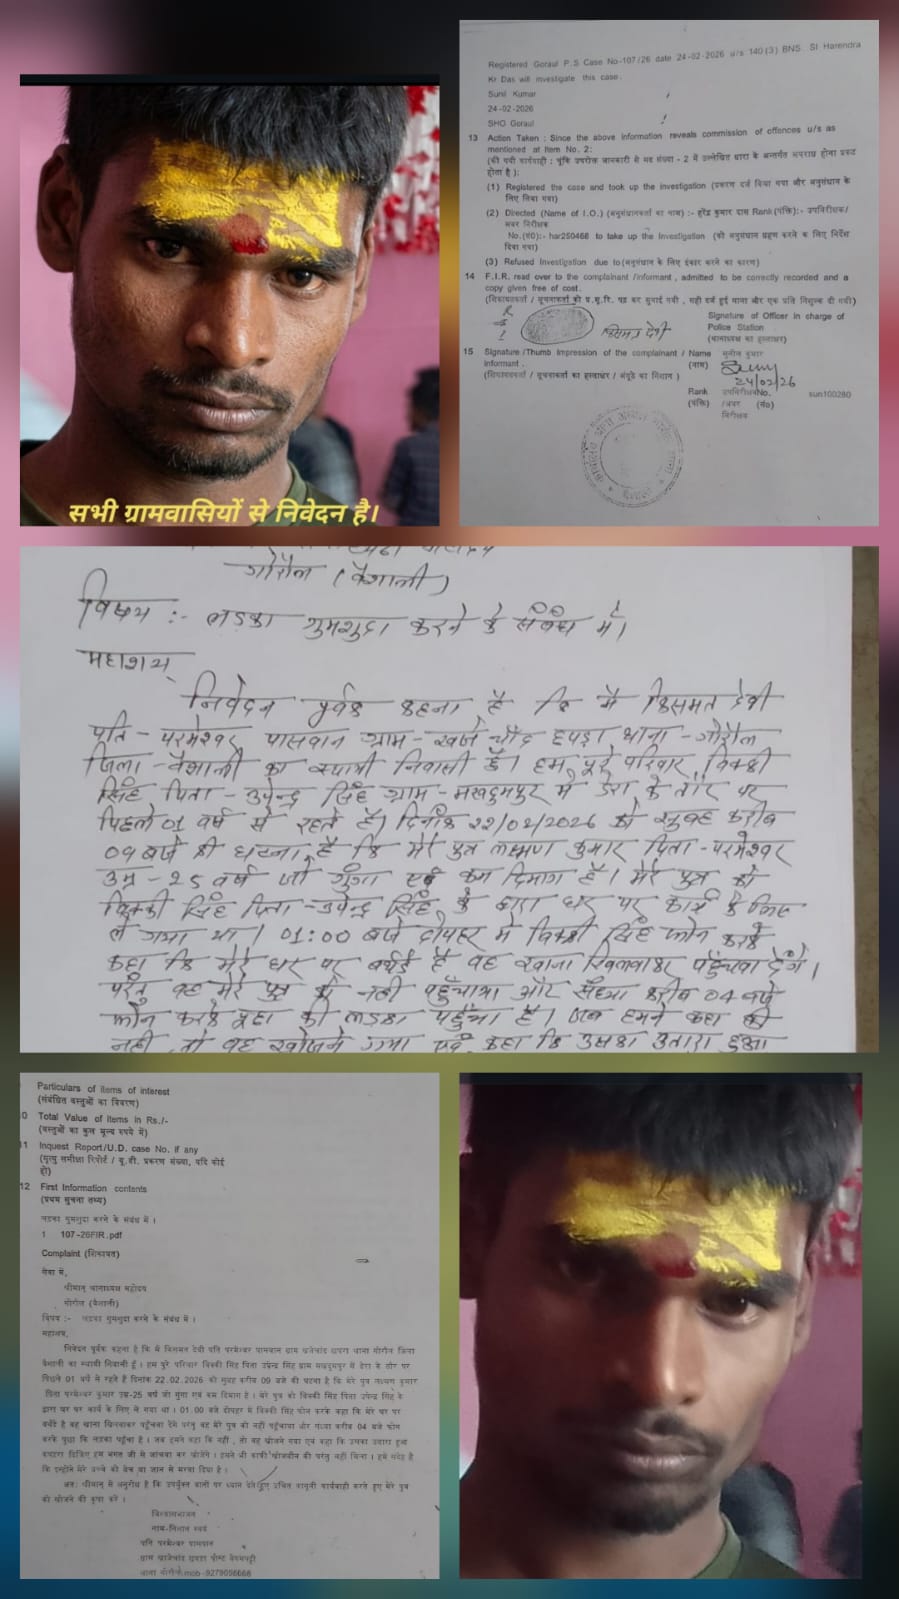 सभी ग्रामवासियों से निवेदन है।
Registered Goraul P.S. Case No-107/26 date 24-02-2026 u/s 140(3) BNS. SI Harendra
Kr Das will investigate this case.
Sunil Kumar
24-02-2026
SHO Goraul
13 Action Taken : Since the above information reveals commission of offences u/s as
mentioned at Item No. 2:
(की गयी कार्यवाही : चूंकि उपरोक्त जानकारी से मद संख्या - 2 में उल्लेखित धारा के अन्तर्गत अपराध होना प्रकट
होता है ):
(1) Registered the case and took up the investigation (प्रकरण दर्ज किया गया और अनुसंधान के
लिए लिया गया)
(2) Directed (Name of I.O.) (अनुसंधानकर्ता का नाम) :- हरेंद्र कुमार दास Rank (पंक्ति):- उपनिरीक्षक/
अवर निरीक्षक
No.(सं0):- har250466 to take up the Investigation (को अनुसंधान ग्रहण करने के लिए निर्देश
दिया गया)
(3) Refused Investigation due to (अनुसंधान के लिए इंकार करने का कारण)
14 F.I.R. read over to the complainant /informant , admitted to be correctly recorded and a
copy given free of cost.
(शिकायतकर्ता / सूचनाकर्ता को प्र.सू.रि. पढ़ कर सुनाई गयी , सही दर्ज हुई माना और एक प्रति निशुल्क दी गयी)
किसमत देवी
Signature of Officer in charge of
Police Station
(थानाध्यक्ष का हस्ताक्षर)
15 Signature /Thumb Impression of the complainant /
informant .
(शिकायतकर्ता / सूचनाकर्ता का हस्ताक्षर / अंगूठे का निशान )
Name सुनील कुमार
(नाम)
24/02/26
Rank उपनिरीक्षक No. sun100280
(पंक्ति) /अवर (सं0)
निरीक्षक
गोरौल (वैशाली)
विषय :- लड़का गुमशुदा करने के संबंध में।
महाशय,
निवेदन पूर्वक कहना है कि मैं किसमत देवी
पति - परमेश्वर पासवान ग्राम - छपड़ा थाना - गोरौल
जिला - वैशाली का स्थायी निवासी हूँ। हम पूरे परिवार विक्की
सिंह पिता - उपेन्द्र सिंह ग्राम - मखदुमपुर में डेरा के तौर पर
पिछले 01 वर्ष से रहते हैं। दिनांक 22/02/2026 को सुबह करीब
09 बजे की घटना है कि मेरे पुत्र लक्ष्मण कुमार पिता - परमेश्वर
उम्र - 25 वर्ष जो गूंगा एवं कम दिमाग है। मेरे पुत्र को
विक्की सिंह पिता - उपेन्द्र सिंह के द्वारा घर पर कार्य के लिए
ले गया था। 01:00 बजे दोपहर में विक्की सिंह फोन करके
कहा कि मेरे घर पर है वह खाना खिलवाकर पहुँचवा देंगे।
परंतु वह मेरे पुत्र को नहीं पहुँचाया और संध्या करीब 04 बजे
फोन करके पूछा की लड़का पहुँचा है। जब हमने कहा की
नहीं, तो वह खोजने गया एवं कहा कि उसका उतारा हुआ
Particulars of items of interest
(संबंधित वस्तुओं का विवरण)
0 Total Value of Items in Rs./-
(वस्तुओं का कुल मूल्य रुपये में)
11 Inquest Report/U.D. case No. if any
(मृत्यु समीक्षा रिपोर्ट / यू.डी. प्रकरण संख्या, यदि कोई
हो)
12 First Information contents
(प्रथम सूचना तथ्य)
लड़का गुमशुदा करने के संबंध में ।
1 107-26FIR.pdf
Complaint (शिकायत)
सेवा में,
श्रीमान् थानाध्यक्ष महोदय
गोरौल (वैशाली)
विषय :- लड़का गुमशुदा करने के संबंध में ।
महाशय,
निवेदन पूर्वक कहना है कि मैं किसमत देवी पति परमेश्वर पासवान ग्राम छपरा थाना गोरौल जिला
वैशाली का स्थायी निवासी हूँ । हम पूरे परिवार विक्की सिंह पिता उपेन्द्र सिंह ग्राम मखदुमपुर में डेरा के तौर पर
पिछले 01 वर्ष से रहते है दिनांक 22.02.2026 को सुबह करीब 09 बजे की घटना है कि मेरे पुत्र लक्ष्मण कुमार
पिता परमेश्वर कुमार उम्र-25 वर्ष जो गुंगा एवं कम दिमाग है । मेरे पुत्र को विक्की सिंह पिता उपेन्द्र सिंह के
द्वारा घर पर कार्य के लिए ले गया था । 01.00 बजे दोपहर में विक्की सिंह फोन करके कहा कि मेरे घर पर
है वह खाना खिलवाकर पहुँचवा देंगे परंतु वह मेरे पुत्र को नहीं पहुँचाया और संध्या करीब 04 बजे फोन
करके पूछा कि लड़का पहुँचा है । जब हमने कहा कि नहीं , तो वह खोजने गया एवं कहा कि उसका उतारा हुआ
कपड़ा दिजिए हम भगत जी से जांचवा कर खोजेंगे । हमने भी काफी खोजबीन की परंतु नहीं मिला । हमे संदेह है
कि इन्होंने मेरे बच्चे को बेच या जान से मरवा दिया है ।
अतः श्रीमान् से अनुरोध है कि उपर्युक्त बातों पर ध्यान देते हुए उचित कानूनी कार्यवाही करते हुए मेरे पुत्र
को खोजने की कृपा करें ।
विश्वासभाजन
नाम-निशान स्वयं
पति परमेश्वर पासवान
ग्राम छपरा पोस्ट
थाना गोरौल mob-9279056668